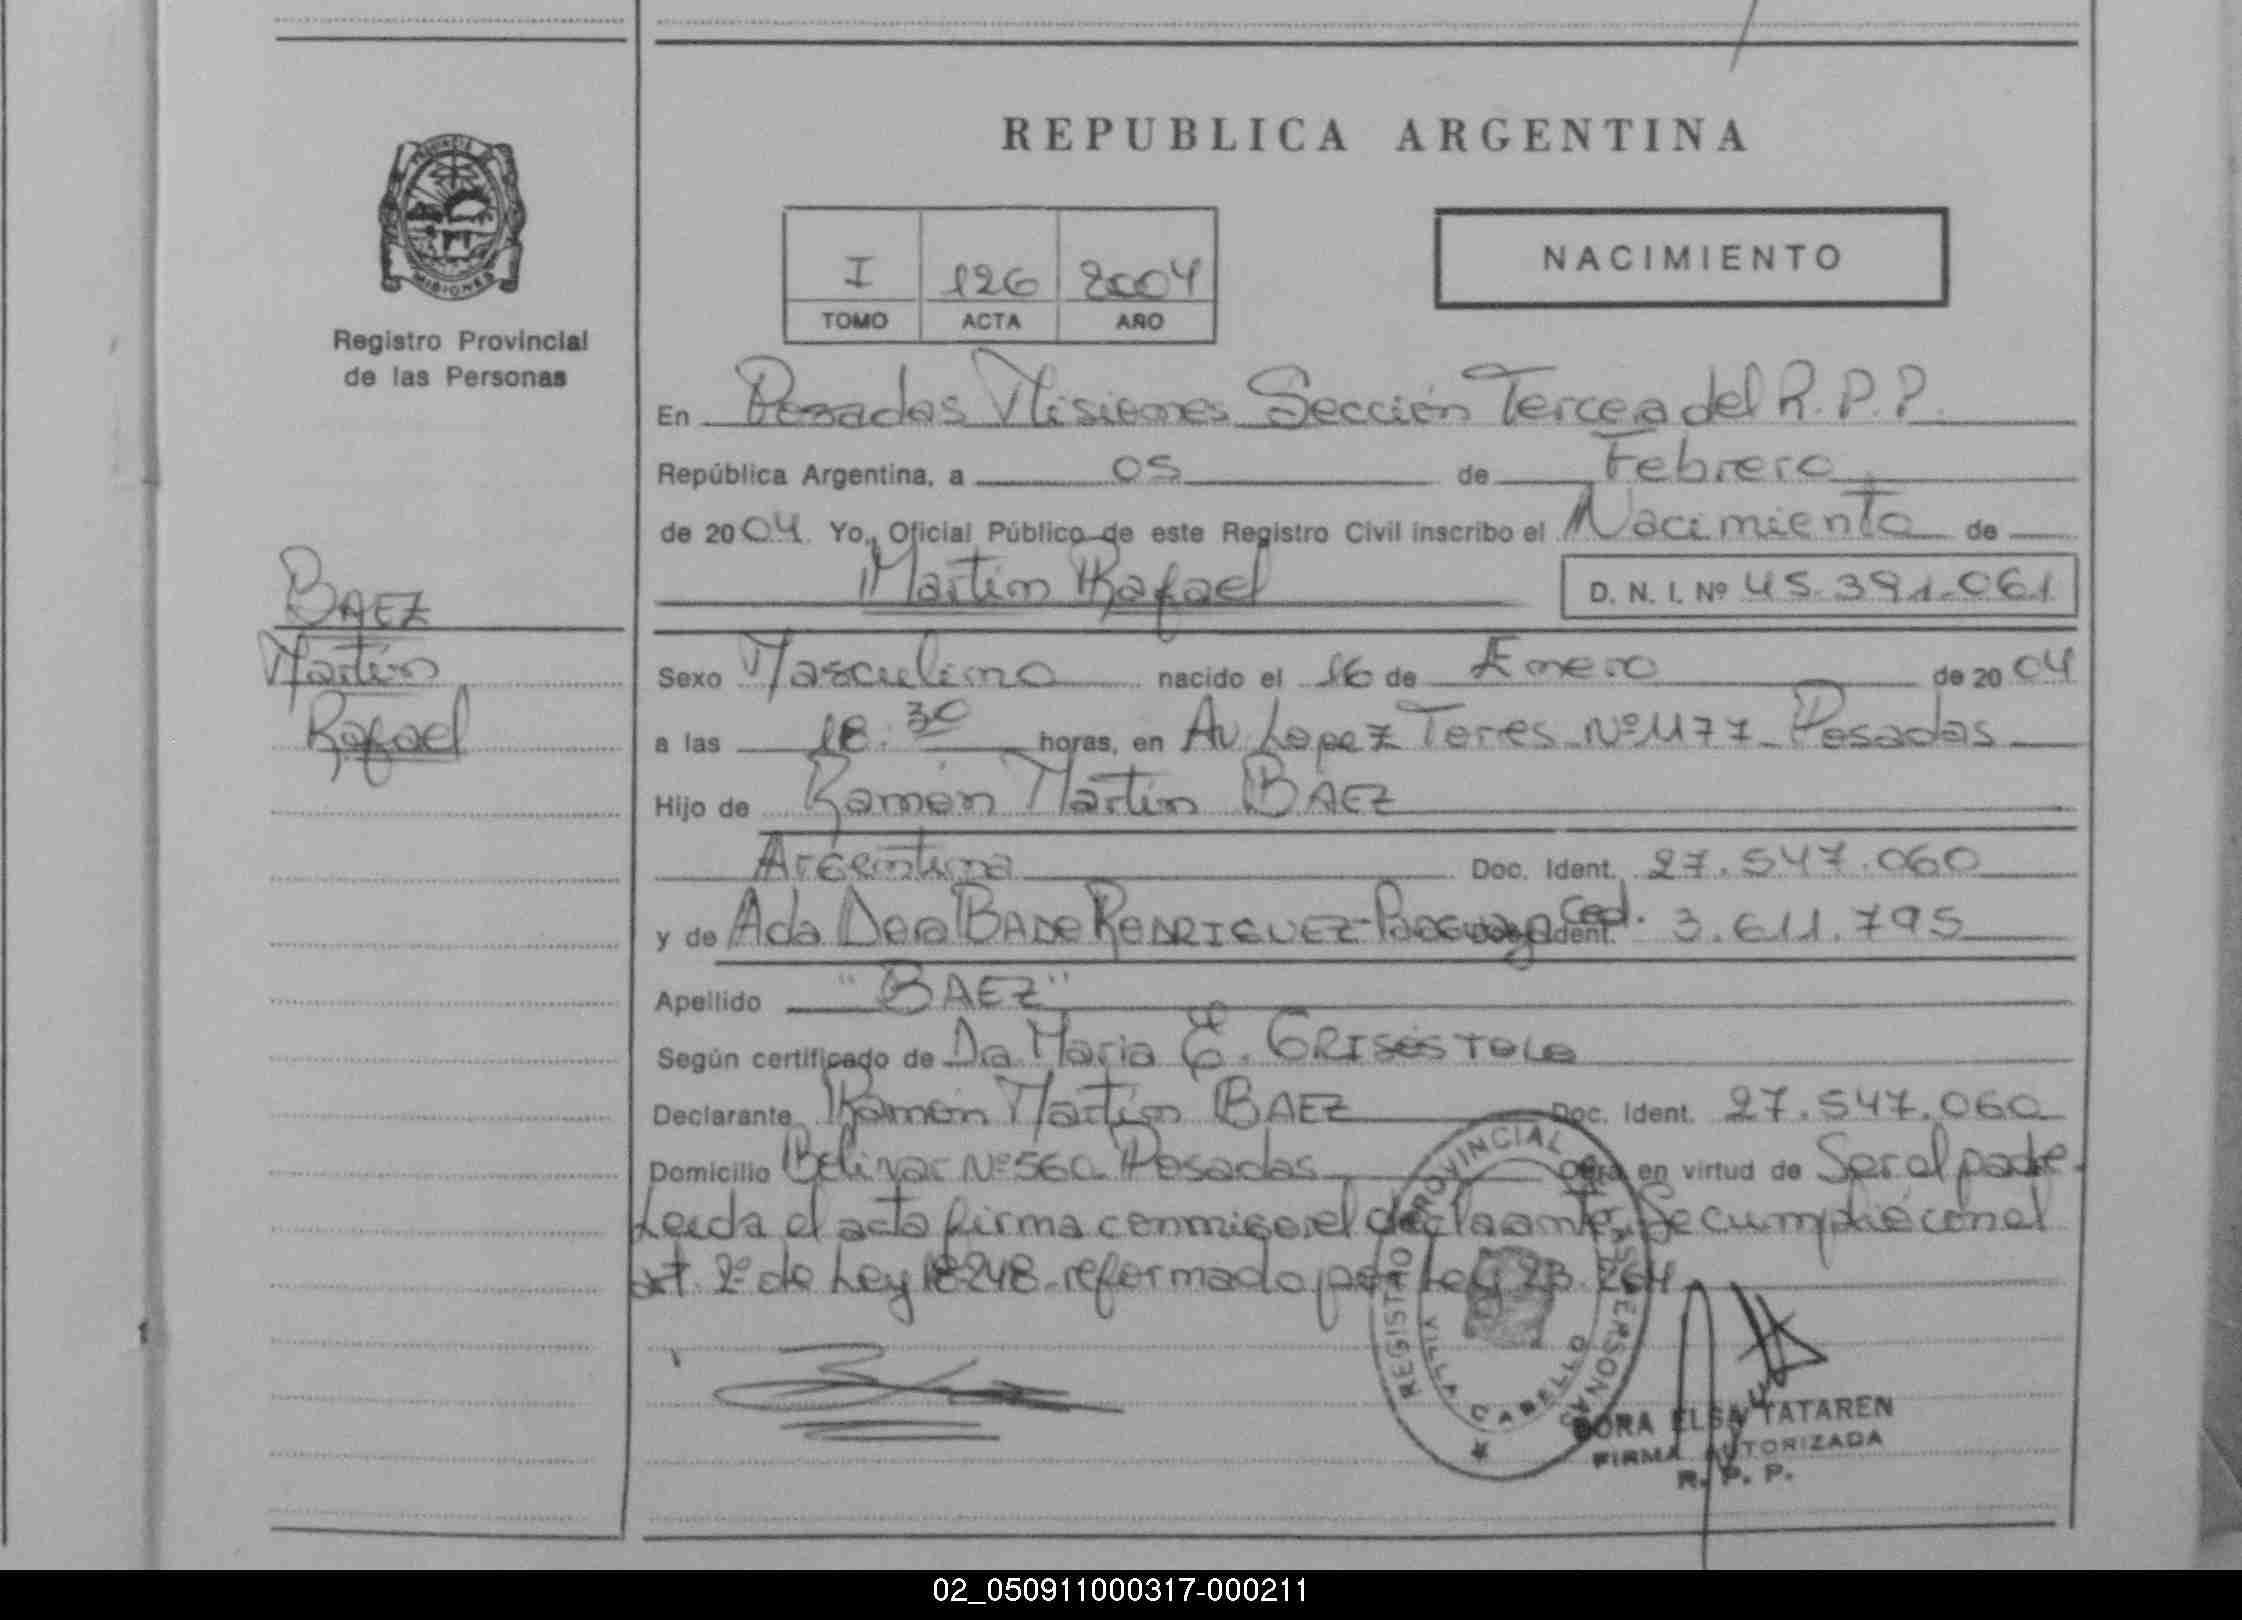 REPUBLICA ARGENTINA
PROVINCIA
MISIONES
Registro Provincial
de las Personas
NACIMIENTO
I 126 2004
TOMO ACTA AÑO
En Posadas Misiones Sección Tercera del R.P.P.
República Argentina, a 05 de Febrero
de 2004. Yo, Oficial Público de este Registro Civil inscribo el Nacimiento de
Martín Rafael
D. N. I. Nº 45.391.061
BAEZ
Martín
Rafael
Sexo Masculino nacido el 16 de Enero de 2004
a las 18.30 horas, en Av. Lopez Torres Nº 1177 - Posadas
Hijo de Ramón Martín BAEZ
Argentina Doc. Ident. 27.547.060
y de Ada Dora BADE RODRIGUEZ - Ced. Ident. 3.611.795
Apellido "BAEZ"
Según certificado de Dra. Maria E.
Declarante Ramón Martín BAEZ Doc. Ident. 27.547.060
Domicilio Bolivar Nº 560 Posadas Obra en virtud de Ser el padre.
Leida el acta firma conmigo el declarante, Se cumplió con el
art. 2º de Ley 18248 reformado por Ley 23.264
REGISTRO PROVINCIAL PERSONAS
VILLA CABELLO
DORA ELSA TATAREN
FIRMA AUTORIZADA
R. P. P.
02_050911000317-000211